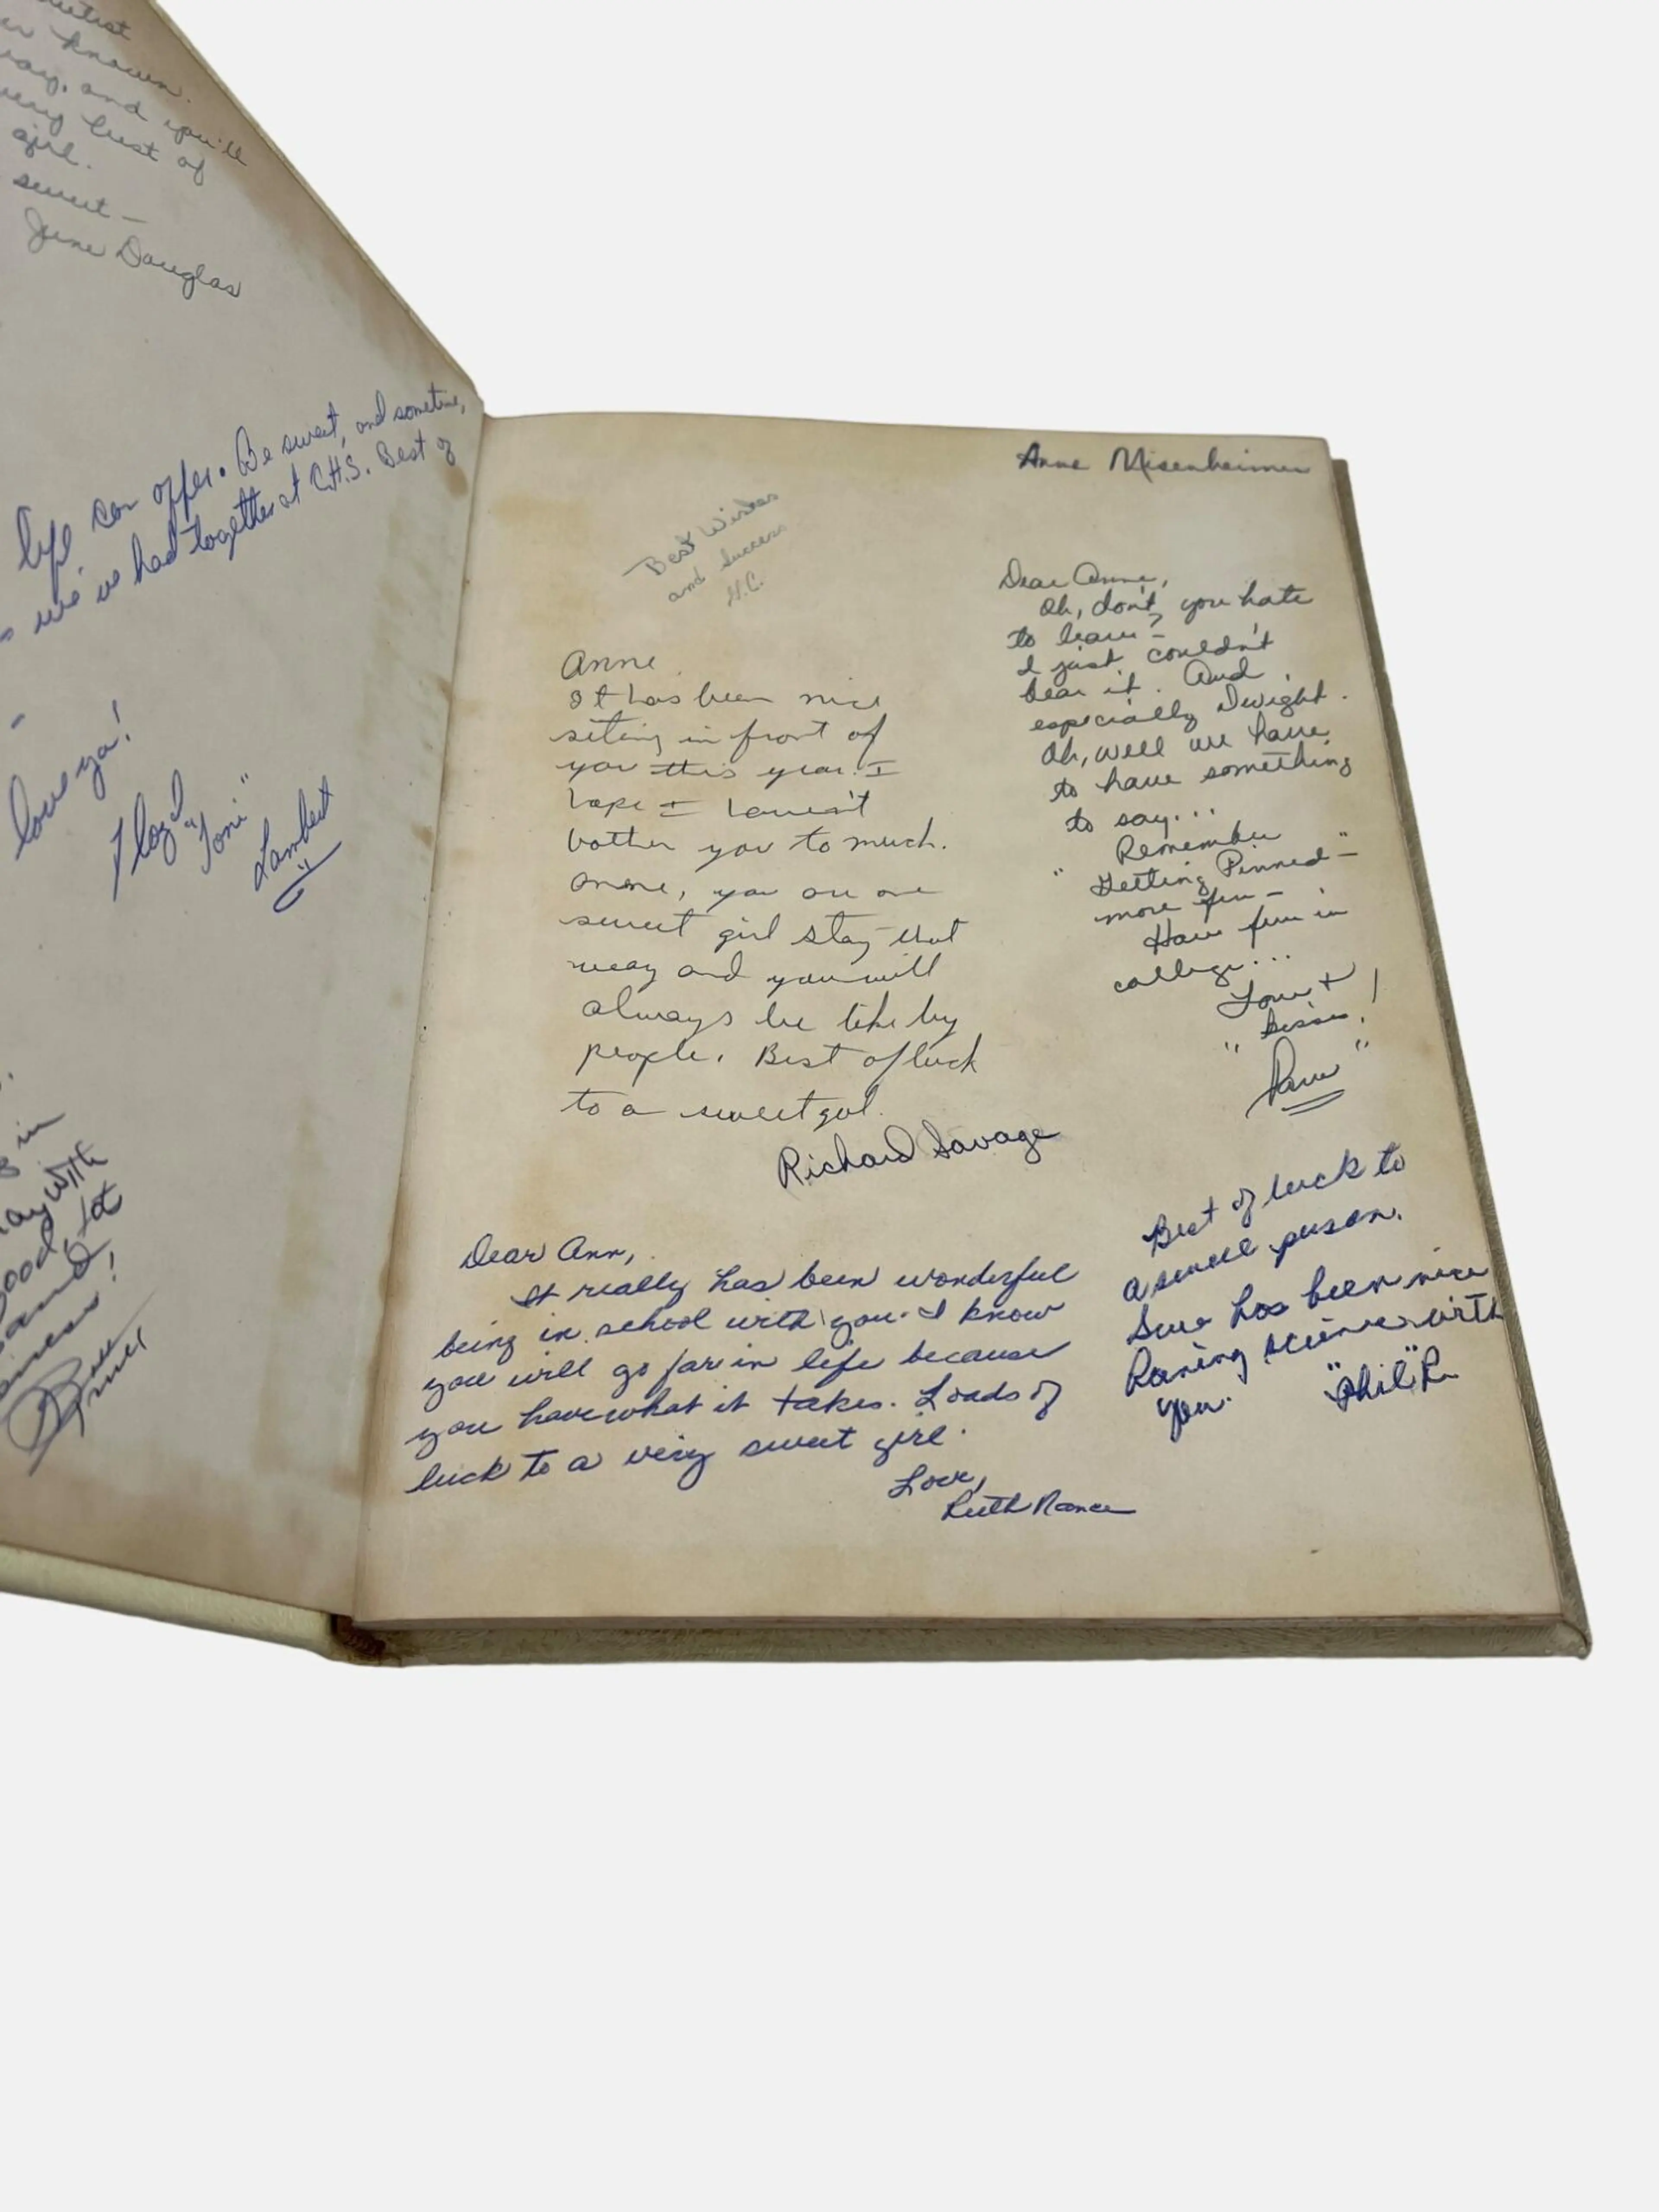 known.
way, and you'll
very best of
girl.
sweet —
June Douglas
life can offer. Be sweet, and sometime,
we've had together at C.H.S. Best of
love ya!
Floyd
"Toni"
Lambert
in
with
good, lot
Anne Misenheimer
Best Wishes
and Success
H.C.
Anne
It has been nice
siting in front of
you this year. I
hope I haven't
bother you to much.
Anne, you are one
sweet girl stay that
way and you will
always be like by
people. Best of luck
to a sweet gal.
Richard Savage
Dear Anne,
Oh, don't you hate
to leave?—
I just couldn't
bear it. And
especially Dwight.
Oh, well we have
to have something
to say...
Remember
"Getting Pinned"—
more fun—
Have fun in
college...
Love +
kisses!
"Pam"
Dear Ann,
It really has been wonderful
being in school with you. I know
you will go far in life because
you have what it takes. Loads of
luck to a very sweet girl.
Love,
Ruth Nance
Best of luck to
a swell person.
Sure has been nice
having science with
you.
"Phil" R